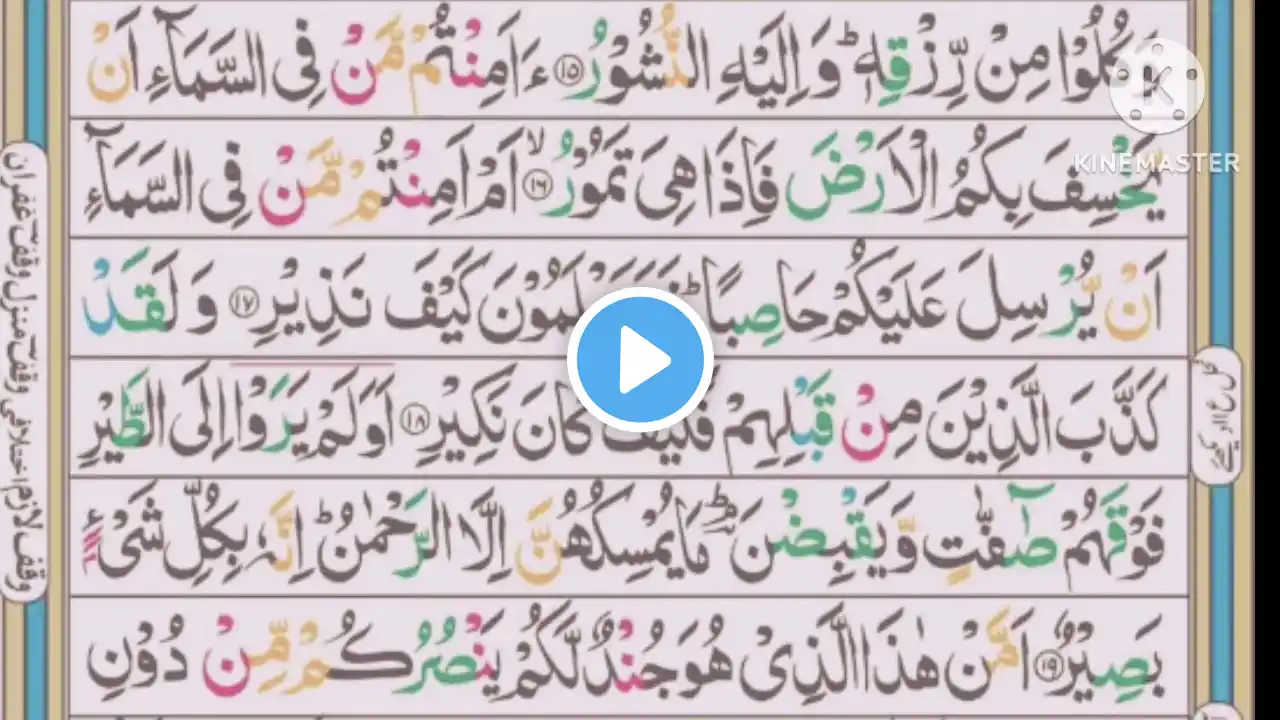 وَكُلُوْا مِنْ رِّزْقِهٖ ؕ وَ اِلَيْهِ النُّشُوْرُ ۝۱۵ ءَاَمِنْتُمْ مَّنْ فِى السَّمَآءِ اَنْ
يَّخْسِفَ بِكُمُ الْاَرْضَ فَاِذَا هِىَ تَمُوْرُ ۙ۝۱۶ اَمْ اَمِنْتُمْ مَّنْ فِى السَّمَآءِ
اَنْ يُّرْسِلَ عَلَيْكُمْ حَاصِبًا ؕ فَسَتَعْلَمُوْنَ كَيْفَ نَذِيْرِ ۝۱۷ وَ لَقَدْ
كَذَّبَ الَّذِيْنَ مِنْ قَبْلِهِمْ فَكَيْفَ كَانَ نَكِيْرِ ۝۱۸ اَوَلَمْ يَرَوْا اِلَى الطَّيْرِ
فَوْقَهُمْ صٰٓفّٰتٍ وَّيَقْبِضْنَ ؔؕ مَا يُمْسِكُهُنَّ اِلَّا الرَّحْمٰنُ ؕ اِنَّهٗ بِكُلِّ شَىْءٍۢ
بَصِيْرٌ ۝۱۹ اَمَّنْ هٰذَا الَّذِىْ هُوَ جُنْدٌ لَّكُمْ يَنْصُرُكُمْ مِّنْ دُوْنِ
KINEMASTER
وقف لازم اختلافی وقف منزل وقف غفران